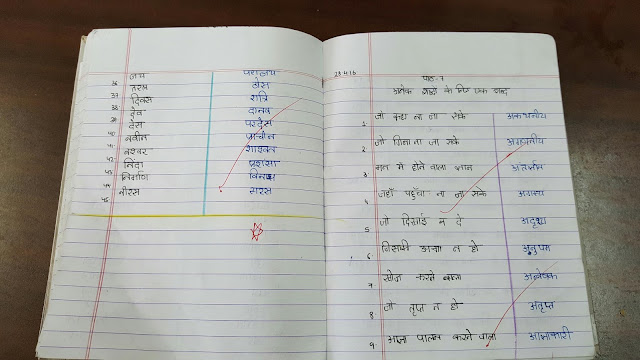 जय पराजय
36 तरल ठोस
37 दिवस रात्रि
देव दानव
39 देस परदेस
40 नवीन प्राचीन
नश्वर शाश्वत
निंदा प्रशंसा
निर्माण विनाश
नीरस सरस
पाठ-1
अनेक शब्दों के लिए एक शब्द
1 जो कहा ना जा सके अकथनीय
2 जो गिना ना जा सके अगणनीय
3 मन में होने वाला ज्ञान अंतर्ज्ञान
4 जहाँ पहुँचा ना जा सके अगम्य
5 जो दिखाई न दे अदृश्य
6 जिसकी उपमा न हो अनुपम
7 खोज करने वाला अन्वेषक
8 जो तृप्त न हो अतृप्त
9 आज्ञा पालन करने वाला आज्ञाकारी